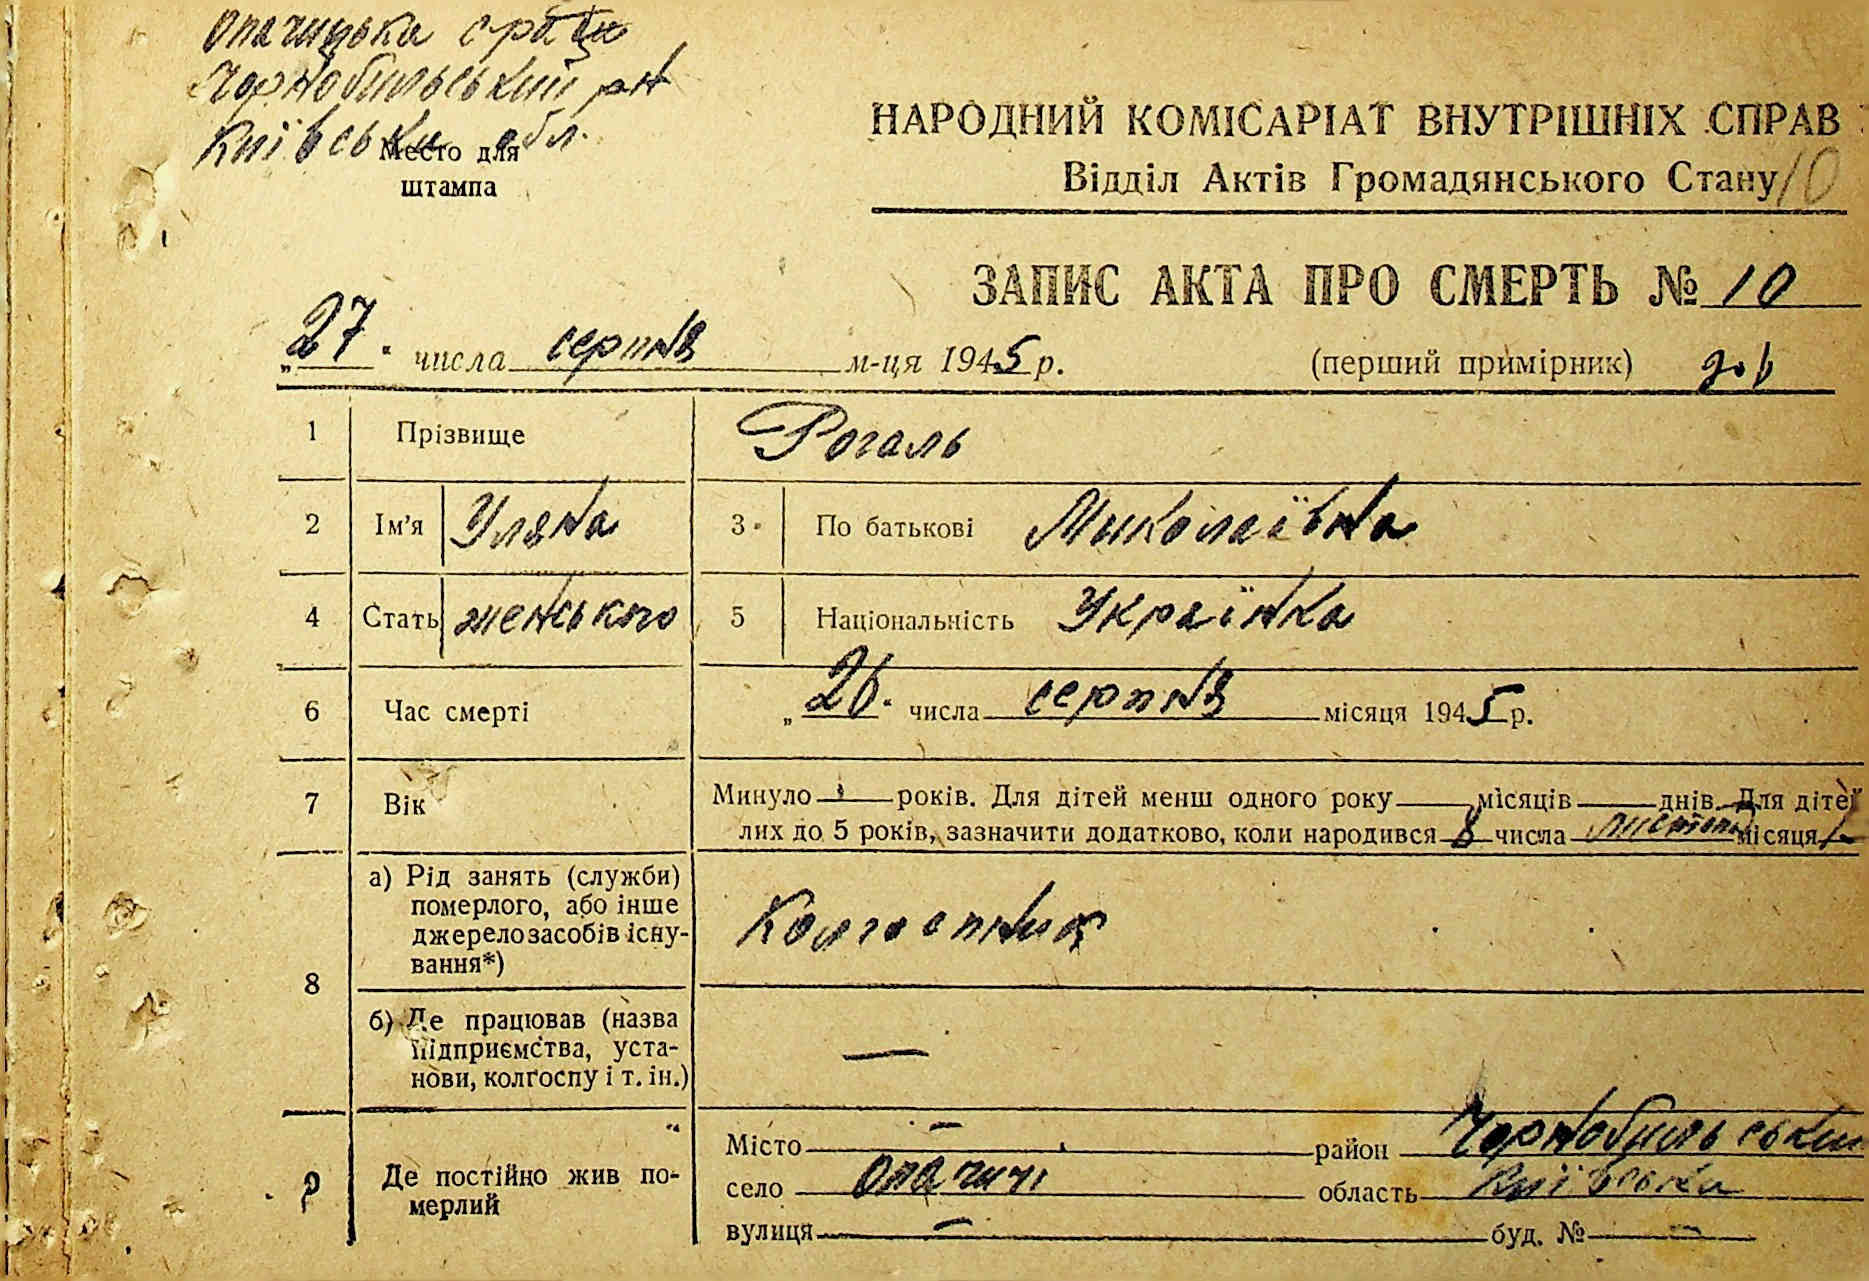 Опачицька с рада
Чорнобильський р-н
Київська обл.
Место для
штампа
НАРОДНИЙ КОМІСАРІАТ ВНУТРІШНІХ СПРАВ
Відділ Актів Громадянського Стану 10
ЗАПИС АКТА ПРО СМЕРТЬ № 10
„27" числа серпня м-ця 1945 р. (перший примірник)
1 Прізвище Рогаль
2 Ім'я Уляна 3 По батькові Миколаївна
4 Стать женського 5 Національність Українка
6 Час смерті „26" числа серпня місяця 1945 р.
7 Вік Минуло 1 років. Для дітей менш одного року місяців днів. Для дітей
лих до 5 років, зазначити додатково, коли народився 8 числа листопад місяця
а) Рід занять (служби)
померлого, або інше
джерело засобів існу-
вання*)
Колгоспниця
8
б) Де працював (назва
підприємства, уста-
нови, колгоспу і т. ін.)
—
9 Де постійно жив по-
мерлий
Місто — район Чорнобильський
село Опачичі область Київська
вулиця — буд. № —